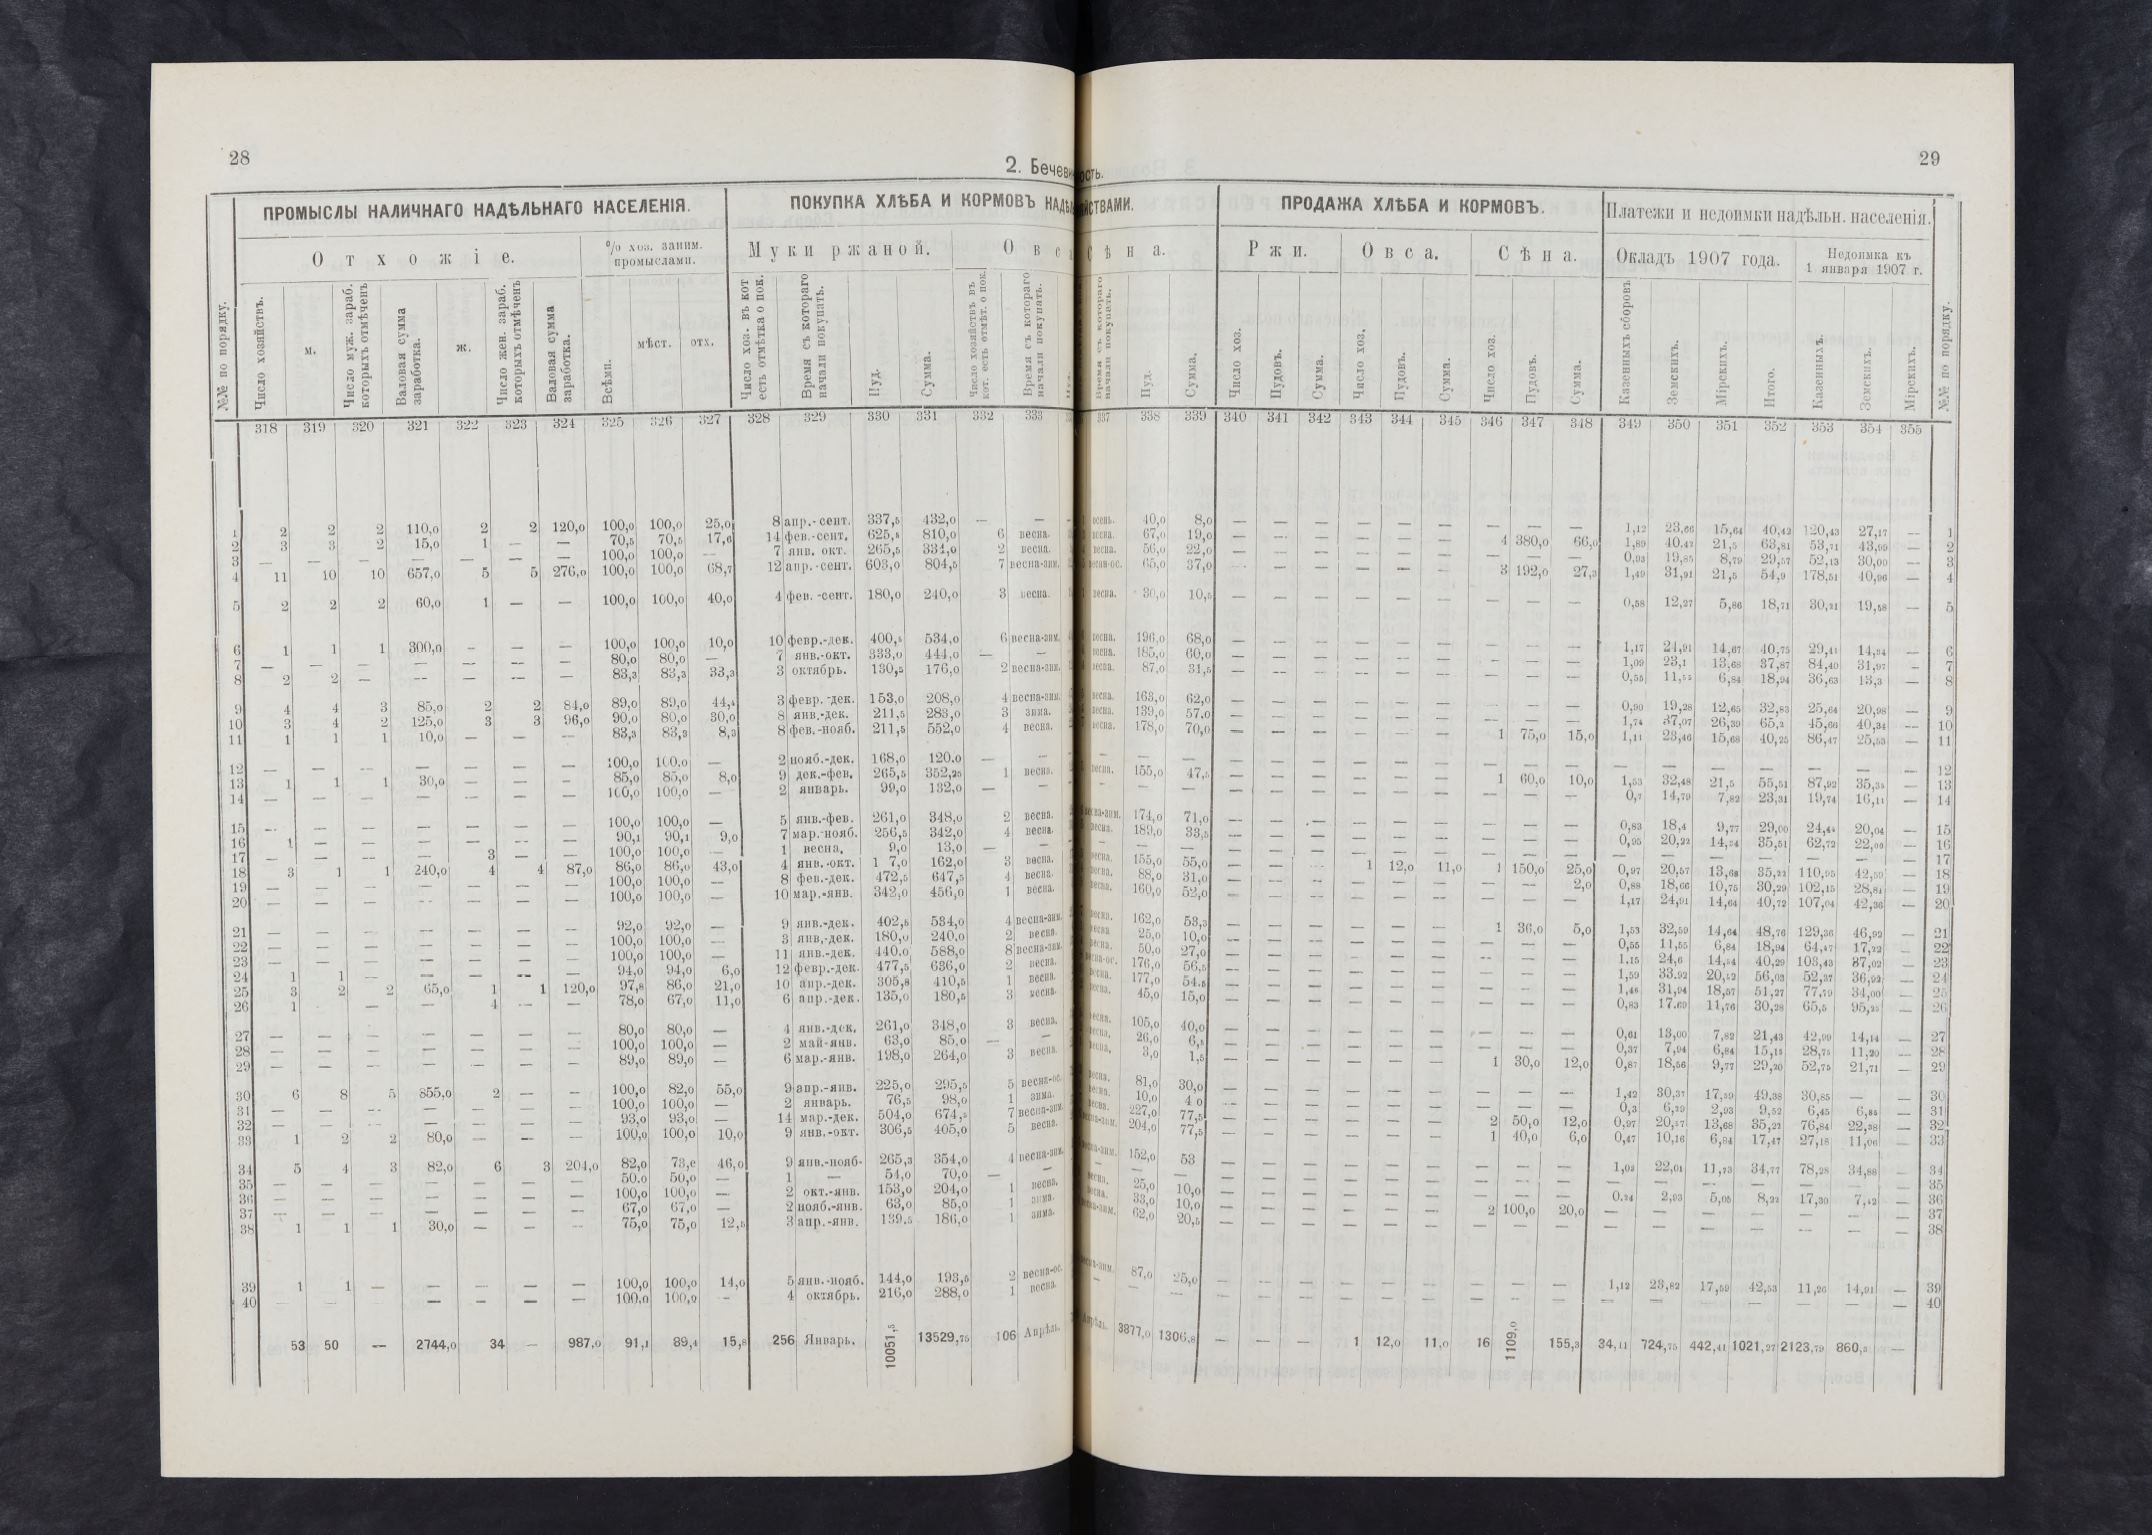 28
29
2. Бечеви
ость.
ПРОМЫСЛЫ НАЛИЧНАГО НАДѢЛЬНАГО НАСЕЛЕНІЯ.
ПОКУПКА ХЛѢБА И КОРМОВЪ НАДѢЛ
ЙСТВАМИ.
ПРОДАЖА ХЛѢБА И КОРМОВЪ.
Платежи и недоимки надѣльн. населенія.
Отхожіе.
% хоз. заним.
промыслами.
Муки ржаной.
Овса
Сѣна.
Ржи.
Овса.
Сѣна.
Окладъ 1907 года.
Недоимка къ
1 января 1907 г.
№№ по порядку.
Число хозяйствъ.
м.
Число муж. зараб.
которыхъ отмѣченъ
Валовая сумма
заработка.
ж.
Число жен. зараб.
которыхъ отмѣченъ
Валовая сумма
заработка.
Всѣми.
мѣст.
отх.
Число хоз. въ кот
есть отмѣтка о пок.
Время съ котораго
начали покупать.
Пуд.
Сумма.
Число хозяйствъ въ
кот. есть отмѣт. о пок.
Время съ котораго
начали покупать.
Время съ котораго
начали покупать.
Пуд.
Сумма.
Число хоз.
Пудовъ.
Сумма.
Число хоз.
Пудовъ.
Сумма.
Число хоз.
Пудовъ.
Сумма.
Казенныхъ сборовъ
Земскихъ.
Мірскихъ.
Итого.
Казенныхъ.
Земскихъ.
Мірскихъ.
№№ по порядку.
318 319 320 321 322 323 324 325 326 327 328 329 330 331 332 333 337 338 339 340 341 342 343 344 345 346 347 348 349 350 351 352 353 354 355
1 2 2 2 110,0 2 2 120,0 100,0 100,0 25,0 8 апр.-сент. 337,5 432,0 — — осень. 40,0 8,0 — — — — — — — — — 1,12 23,66 15,64 40,42 120,43 27,17 — 1
2 3 3 2 15,0 1 — — 70,5 70,5 17,6 14 фев.-сент. 625,5 810,0 6 весна. весна. 67,0 19,0 — — — — — — 4 380,0 66,0 1,89 40,42 21,5 63,81 53,71 43,99 — 2
3 — — — — — — — 100,0 100,0 — 7 янв. окт. 265,5 334,0 2 весна. весна. 56,0 22,0 — — — — — — — — — 0,93 19,85 8,79 29,57 52,13 30,00 — 3
4 11 10 10 657,0 5 5 276,0 100,0 100,0 68,7 12 апр.-сент. 603,0 804,5 7 весна-зим. весна-ос. 65,0 37,0 — — — — — — 3 192,0 27,3 1,49 31,91 21,5 54,9 178,51 40,96 — 4
5 2 2 2 60,0 1 — — 100,0 100,0 40,0 4 фев.-сент. 180,0 240,0 3 весна. весна. 30,0 10,5 — — — — — — — — — 0,58 12,27 5,86 18,71 30,21 19,58 — 5
6 1 1 1 300,0 — — — 100,0 100,0 10,0 10 февр.-дек. 400,5 534,0 6 весна-зим. весна. 196,0 68,0 — — — — — — — — — 1,17 24,91 14,67 40,75 29,41 14,34 — 6
7 — — — — — — — 80,0 80,0 — 7 янв.-окт. 333,0 444,0 — — весна. 185,0 60,0 — — — — — — — — — 1,09 23,1 13,68 37,87 84,40 31,97 — 7
8 2 2 — — — — — 83,3 83,3 33,3 3 октябрь. 130,5 176,0 2 весна-зим. весна. 87,0 31,5 — — — — — — — — — 0,55 11,55 6,84 18,94 36,63 13,3 — 8
9 4 4 3 85,0 2 2 84,0 89,0 89,0 44,4 3 февр.-дек. 153,0 208,0 4 весна-зим. весна. 163,0 62,0 — — — — — — — — — 0,90 19,28 12,65 32,83 25,64 20,98 — 9
10 3 4 2 125,0 3 3 96,0 90,0 80,0 30,0 8 янв.-дек. 211,5 283,0 3 зима. весна. 139,0 57,0 — — — — — — — — — 1,74 37,07 26,39 65,2 45,66 40,34 — 10
11 1 1 1 10,0 — — — 83,3 83,3 8,3 8 фев.-нояб. 211,5 552,0 4 весна. весна. 178,0 70,0 — — — — — — 1 75,0 15,0 1,11 23,46 15,68 40,25 86,47 25,53 — 11
12 — — — — — — — 100,0 100,0 — 2 нояб.-дек. 168,0 120.0 — — — — — — — — — — — — — — — — — — — — — — 12
13 1 1 1 30,0 — — — 85,0 85,0 8,0 9 дек.-фев. 265,5 352,25 1 весна. весна. 155,0 47,5 — — — — — — 1 60,0 10,0 1,53 32,48 21,5 55,51 87,92 35,35 — 13
14 — — — — — — — 100,0 100,0 — 2 январь. 99,0 132,0 — — — — — — — — — — — — — — 0,7 14,79 7,82 23,31 19,74 16,11 — 14
15 — — — — — — — 100,0 100,0 — 5 янв.-фев. 261,0 348,0 2 весна. весна-зим. 174,0 71,0 — — — — — — — — — 0,83 18,4 9,77 29,00 24,44 20,04 — 15
16 1 — — — — — — 90,1 90,1 9,0 7 мар.-нояб. 256,5 342,0 4 весна. весна. 189,0 33,5 — — — — — — — — — 0,95 20,22 14,34 35,51 62,72 22,00 — 16
17 — — — — 3 — — 100,0 100,0 — 1 весна. 9,0 13,0 — — — — — — — — — — — — — — — — — — — — — 17
18 3 1 1 240,0 4 4 87,0 86,0 86,0 43,0 4 янв.-окт. 1 7,0 162,0 3 весна. весна. 155,0 55,0 — — — 1 12,0 11,0 1 150,0 25,0 0,97 20,57 13,68 35,22 110,95 42,59 — 18
19 — — — — — — — 100,0 100,0 — 8 фев.-дек. 472,5 647,5 4 весна. весна. 88,0 31,0 — — — — — — — — 2,0 0,88 18,66 10,75 30,29 102,15 28,84 — 19
20 — — — — — — — 100,0 100,0 — 10 мар.-янв. 342,0 456,0 1 весна. весна. 160,0 52,0 — — — — — — — — — 1,17 24,91 14,64 40,72 107,04 42,36 — 20
21 — — — — — — — 92,0 92,0 — 9 янв.-дек. 402,5 534,0 4 весна-зим. весна. 162,0 53,3 — — — — — — 1 36,0 5,0 1,53 32,59 14,64 48,76 129,36 46,92 — 21
22 — — — — — — — 100,0 100,0 — 3 янв.-дек. 180,0 240.0 2 весна. весна 25,0 10,0 — — — — — — — — — 0,55 11,55 6,84 18,94 64,47 17,22 — 22
23 — — — — — — — 100,0 100,0 — 11 янв.-дек. 440.0 588,0 8 весна-зим. весна. 50,0 27,0 — — — — — — — — — 1,15 24,6 14,54 40,29 103,43 37,02 — 23
24 1 1 — — — — — 94,0 94,0 6,0 12 февр.-дек. 477,5 636,0 2 весна. весна-ос. 176,0 56,5 — — — — — — — — — 1,59 33,92 20,52 56,03 52,37 36,92 — 24
25 3 2 2 65,0 1 1 120,0 97,8 86,0 21,0 10 апр.-дек. 305,8 410,5 1 весна. весна. 177,0 54.5 — — — — — — — — — 1,46 31,94 18,57 51,27 77,79 34,00 — 25
26 1 — — — 4 — — 78,0 67,0 11,0 6 апр.-дек. 135,0 180,5 3 весна. весна. 45,0 15,0 — — — — — — — — — 0,83 17.69 11,76 30,28 65,5 95,25 — 26
27 — — — — — — — 80,0 80,0 — 4 янв.-дек. 261,0 348,0 3 весна. весна. 105,0 40,0 — — — — — — — — — 0,61 13,00 7,82 21,43 42,99 14,14 — 27
28 — — — — — — — 100,0 100,0 — 2 май-янв. 63,0 85,0 — — весна. 26,0 6,5 — — — — — — — — — 0,37 7,94 6,84 15,15 28,75 11,20 — 28
29 — — — — — — — 89,0 89,0 — 6 мар.-янв. 198,0 264,0 3 весна. весна. 3,0 1,5 — — — — — — 1 30,0 12,0 0,87 18,56 9,77 29,20 52,75 21,71 — 29
30 6 8 5 855,0 2 — — 100,0 82,0 55,0 9 апр.-янв. 225,0 295,5 5 весна-ос. весна. 81,0 30,0 — — — — — — — — — 1,42 30,37 17,59 49,38 30,85 — — 30
31 — — — — — — — 100,0 100,0 — 2 январь. 76,5 98,0 1 зима. весна. 10,0 4 0 — — — — — — — — — 0,3 6,29 2,93 9,52 6,45 6,85 — 31
32 — — — — — — — 93,0 93,0 — 14 мар.-дек. 504,0 674,5 7 весна-зим. весна. 227,0 77,5 — — — — — — 2 50,0 12,0 0,97 20,57 13,68 35,22 76,84 22,38 — 32
33 1 2 2 80,0 — — — 100,0 100,0 10,0 9 янв.-окт. 306,5 405,0 5 весна. весна-зим. 204,0 77,5 — — — — — — 1 40,0 6,0 0,47 10,16 6,84 17,47 27,18 11,06 — 33
34 5 4 3 82,0 6 3 204,0 82,0 73,6 46,0 9 янв.-нояб- 265,3 354,0 4 весна-зим. весна-зим. 152,0 53 — — — — — — — — — 1,03 22,01 11,73 34,77 78,28 34,88 — 34
35 — — — — — — — 50.0 50,0 — 1 — 54,0 70,0 — — — — — — — — — — — — — — — — — — — — — 35
36 — — — — — — — 100,0 100,0 — 2 окт.-янв. 153,0 204,0 1 весна. весна. 25,0 10,0 — — — — — — — — — 0.24 2,93 5,05 8,22 17,30 7,42 — 36
37 — — — — — — — 67,0 67,0 — 2 нояб.-янв. 63,0 85,0 1 зима. весна. 33,0 10,0 — — — — — — 2 100,0 20,0 — — — — — — — 37
38 1 1 1 30,0 — — — 75,0 75,0 12,5 3 апр.-янв. 139,5 186,0 1 зима. весна-зим. 62,0 20,5 — — — — — — — — — — — — — — — — 38
39 1 1 — — — — — 100,0 100,0 14,0 5 янв.-нояб. 144,0 193,5 2 весна-ос. весна-зим. 87,0 25,0 — — — — — — — — — 1,12 23,82 17,59 42,53 11,26 14,91 — 39
40 — — — — — — — 100,0 100,0 — 4 октябрь. 216,0 288,0 1 весна. — — — — — — — — — — — — — — — — — — — — 40
53 50 — 2744,0 34 — 987,0 91,1 89,4 15,8 256 Январь. 10051,5 13529,75 106 Апрѣль. Апрѣль. 3877,0 1306,8 — — — 1 12,0 11,0 16 1109,0 155,3 34,11 724,75 442,41 1021,27 2123,79 860,3 —